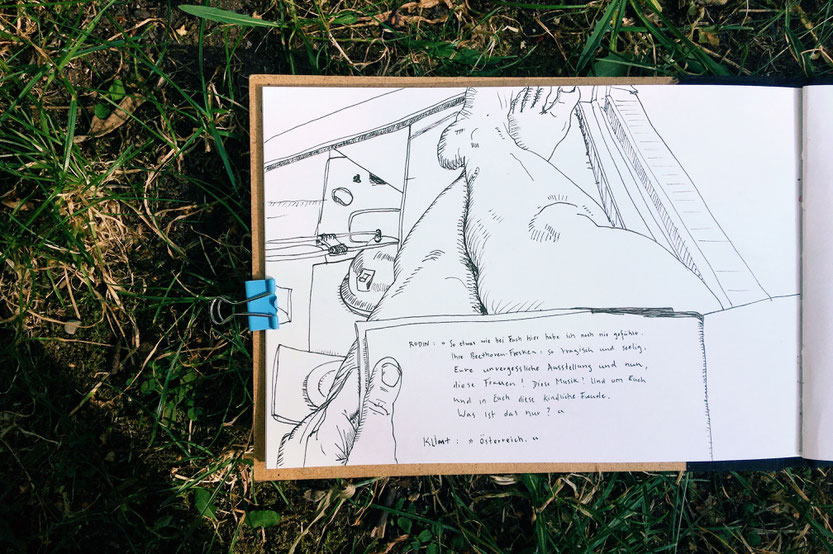 RODIN: » So etwas wie bei Euch hier habe ich noch nie gefühlt.
Ihre Beethoven-Fresken: so tragisch und seelig.
Eure unvergessliche Ausstellung und nun,
diese Frauen! Diese Musik! Und um Euch
und in Euch diese kindliche Freude.
Was ist das nur? «
Klimt: » Österreich. «